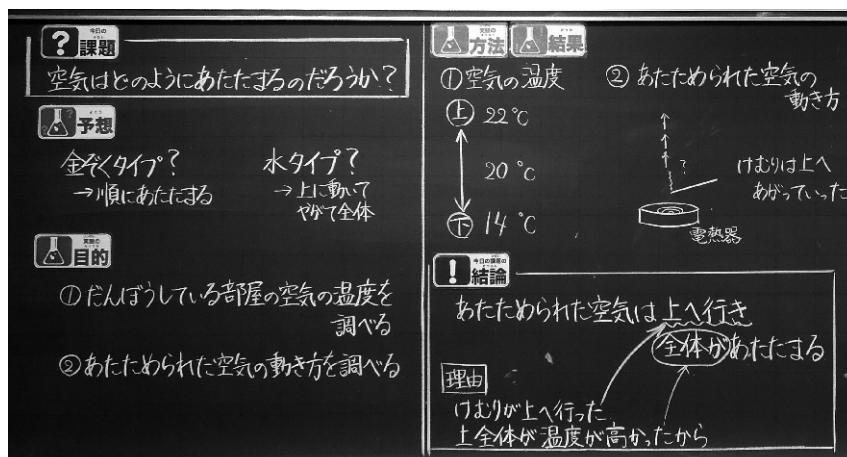 今日の
課題
空気はどのようにあたたまるのだろうか?
予想
金ぞくタイプ?
→順にあたたまる
水タイプ?
→上に動いて
やがて全体
実験の
目的
①だんぼうしている部屋の空気の温度を
調べる
②あたためられた空気の動き方を調べる
実験の
方法
結果
①空気の温度
上 22℃
20℃
下 14℃
②あたためられた空気の
動き方
?
けむりは上へ
あがっていった
電熱器
今日の課題の
結論
あたためられた空気は上へ行き
全体があたたまる
理由
けむりが上へ行った
上全体が温度が高かったから